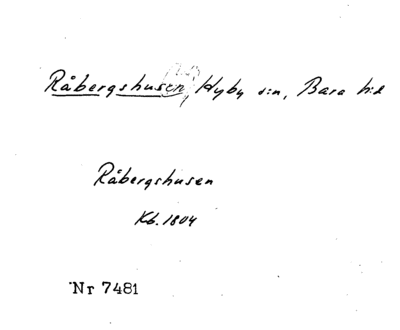 Råbergshusen, Hyby s:n, Bara h:d
Råbergshusen
Kb. 1804
Nr 7481